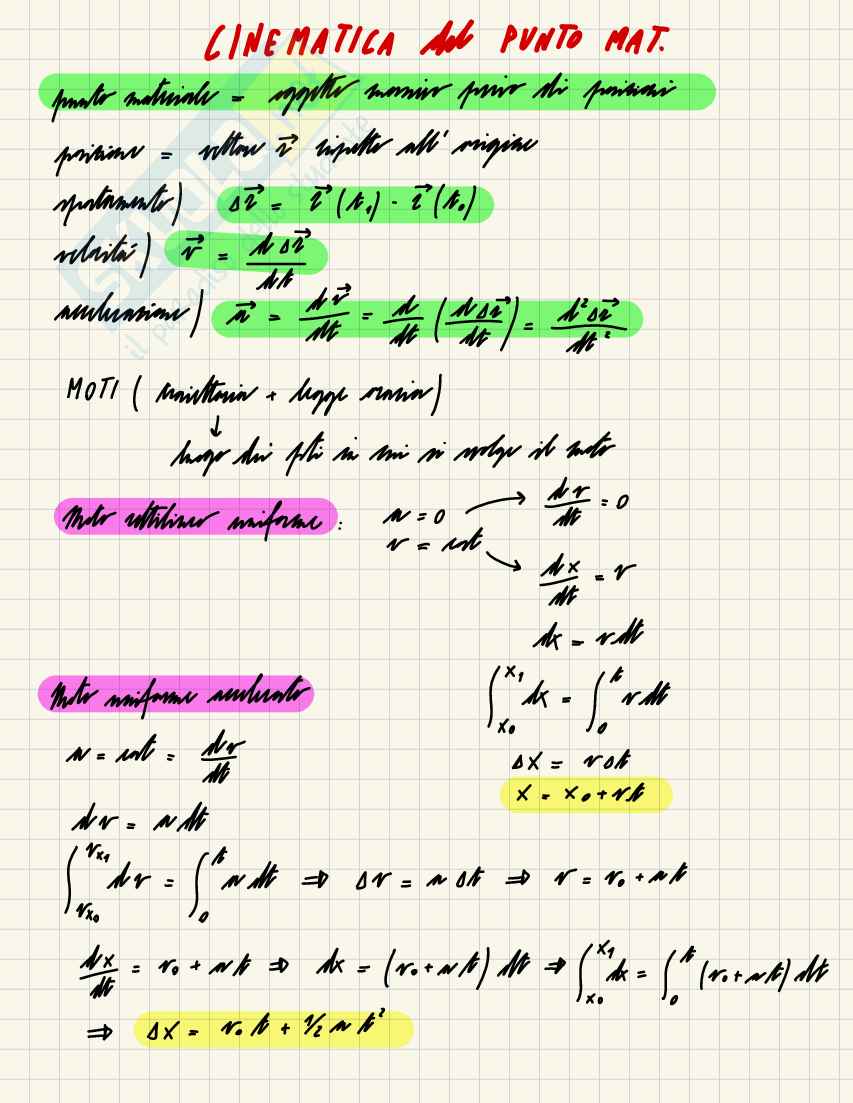 CINEMATICA del PUNTO MAT.
punto materiale = oggetto massivo privo di posizioni
posizione = vettore r⃗ rispetto all' origine
spostamento) Δr⃗ = r⃗(t₁) - r⃗(t₀)
velocità) v⃗ = dΔr⃗/dt
accelerazione) a⃗ = dv⃗/dt = d/dt (dΔr⃗/dt) = d²Δr⃗/dt²
MOTI ( traiettoria + legge oraria)
↓
luogo dei pti in cui si svolge il moto
Moto rettilineo uniforme : a = 0 → dv/dt = 0
v = cost → dx/dt = v
dx = vdt
∫_{x₀}^{x₁} dx = ∫_{0}^{t} vdt
Δx = vΔt
x = x₀ + vt
Moto uniforme accelerato
a = cost = dv/dt
dv = a dt
∫_{vx₀}^{vx₁} dv = ∫_{0}^{t} a dt ⇒ Δv = a Δt ⇒ v = v₀ + at
dx/dt = v₀ + at ⇒ dx = (v₀ + at) dt ⇒ ∫_{x₀}^{x₁} dx = ∫_{0}^{t} (v₀ + at) dt
⇒ Δx = v₀ t + 1/2 a t²
il paradiso dello studente